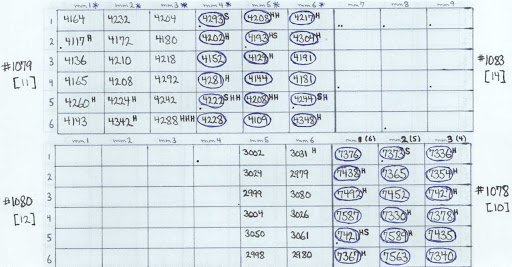 mm1* mm2* mm3* mm4* mm5* mm6* mm7 mm8 mm9
1 4164 4232 4204 4293 S 4208 HH 4217 H
2 4117 H 4172 4180 4202 H 4193 HS 4304 H
#1079 3 4136 4210 4218 4152 4129 H 4191 #1083
[11] 4 4165 4208 4292 4281 H 4144 4181 [14]
5 4260 H 4224 H 4242 4222 S HH 4208 HH 4244 SH
6 4143 4342 H 4288 HHH 4228 4109 4348 H
mm1 mm2 mm3 mm4 mm5 mm6 mm 1 (6) mm 2 (5) mm 3 (4)
1 3002 3031 H 7376 7373 S 7336 H
2 3024 2979 7438 H 7365 7354 H
#1080 3 2999 3080 7492 H 7452 7427 H #1078
[12] 4 3004 3026 7587 7330 H 7378 H [10]
5 3050 3061 7421 HS 7589 H 7435
6 2998 2980 7367 H 7563 7340